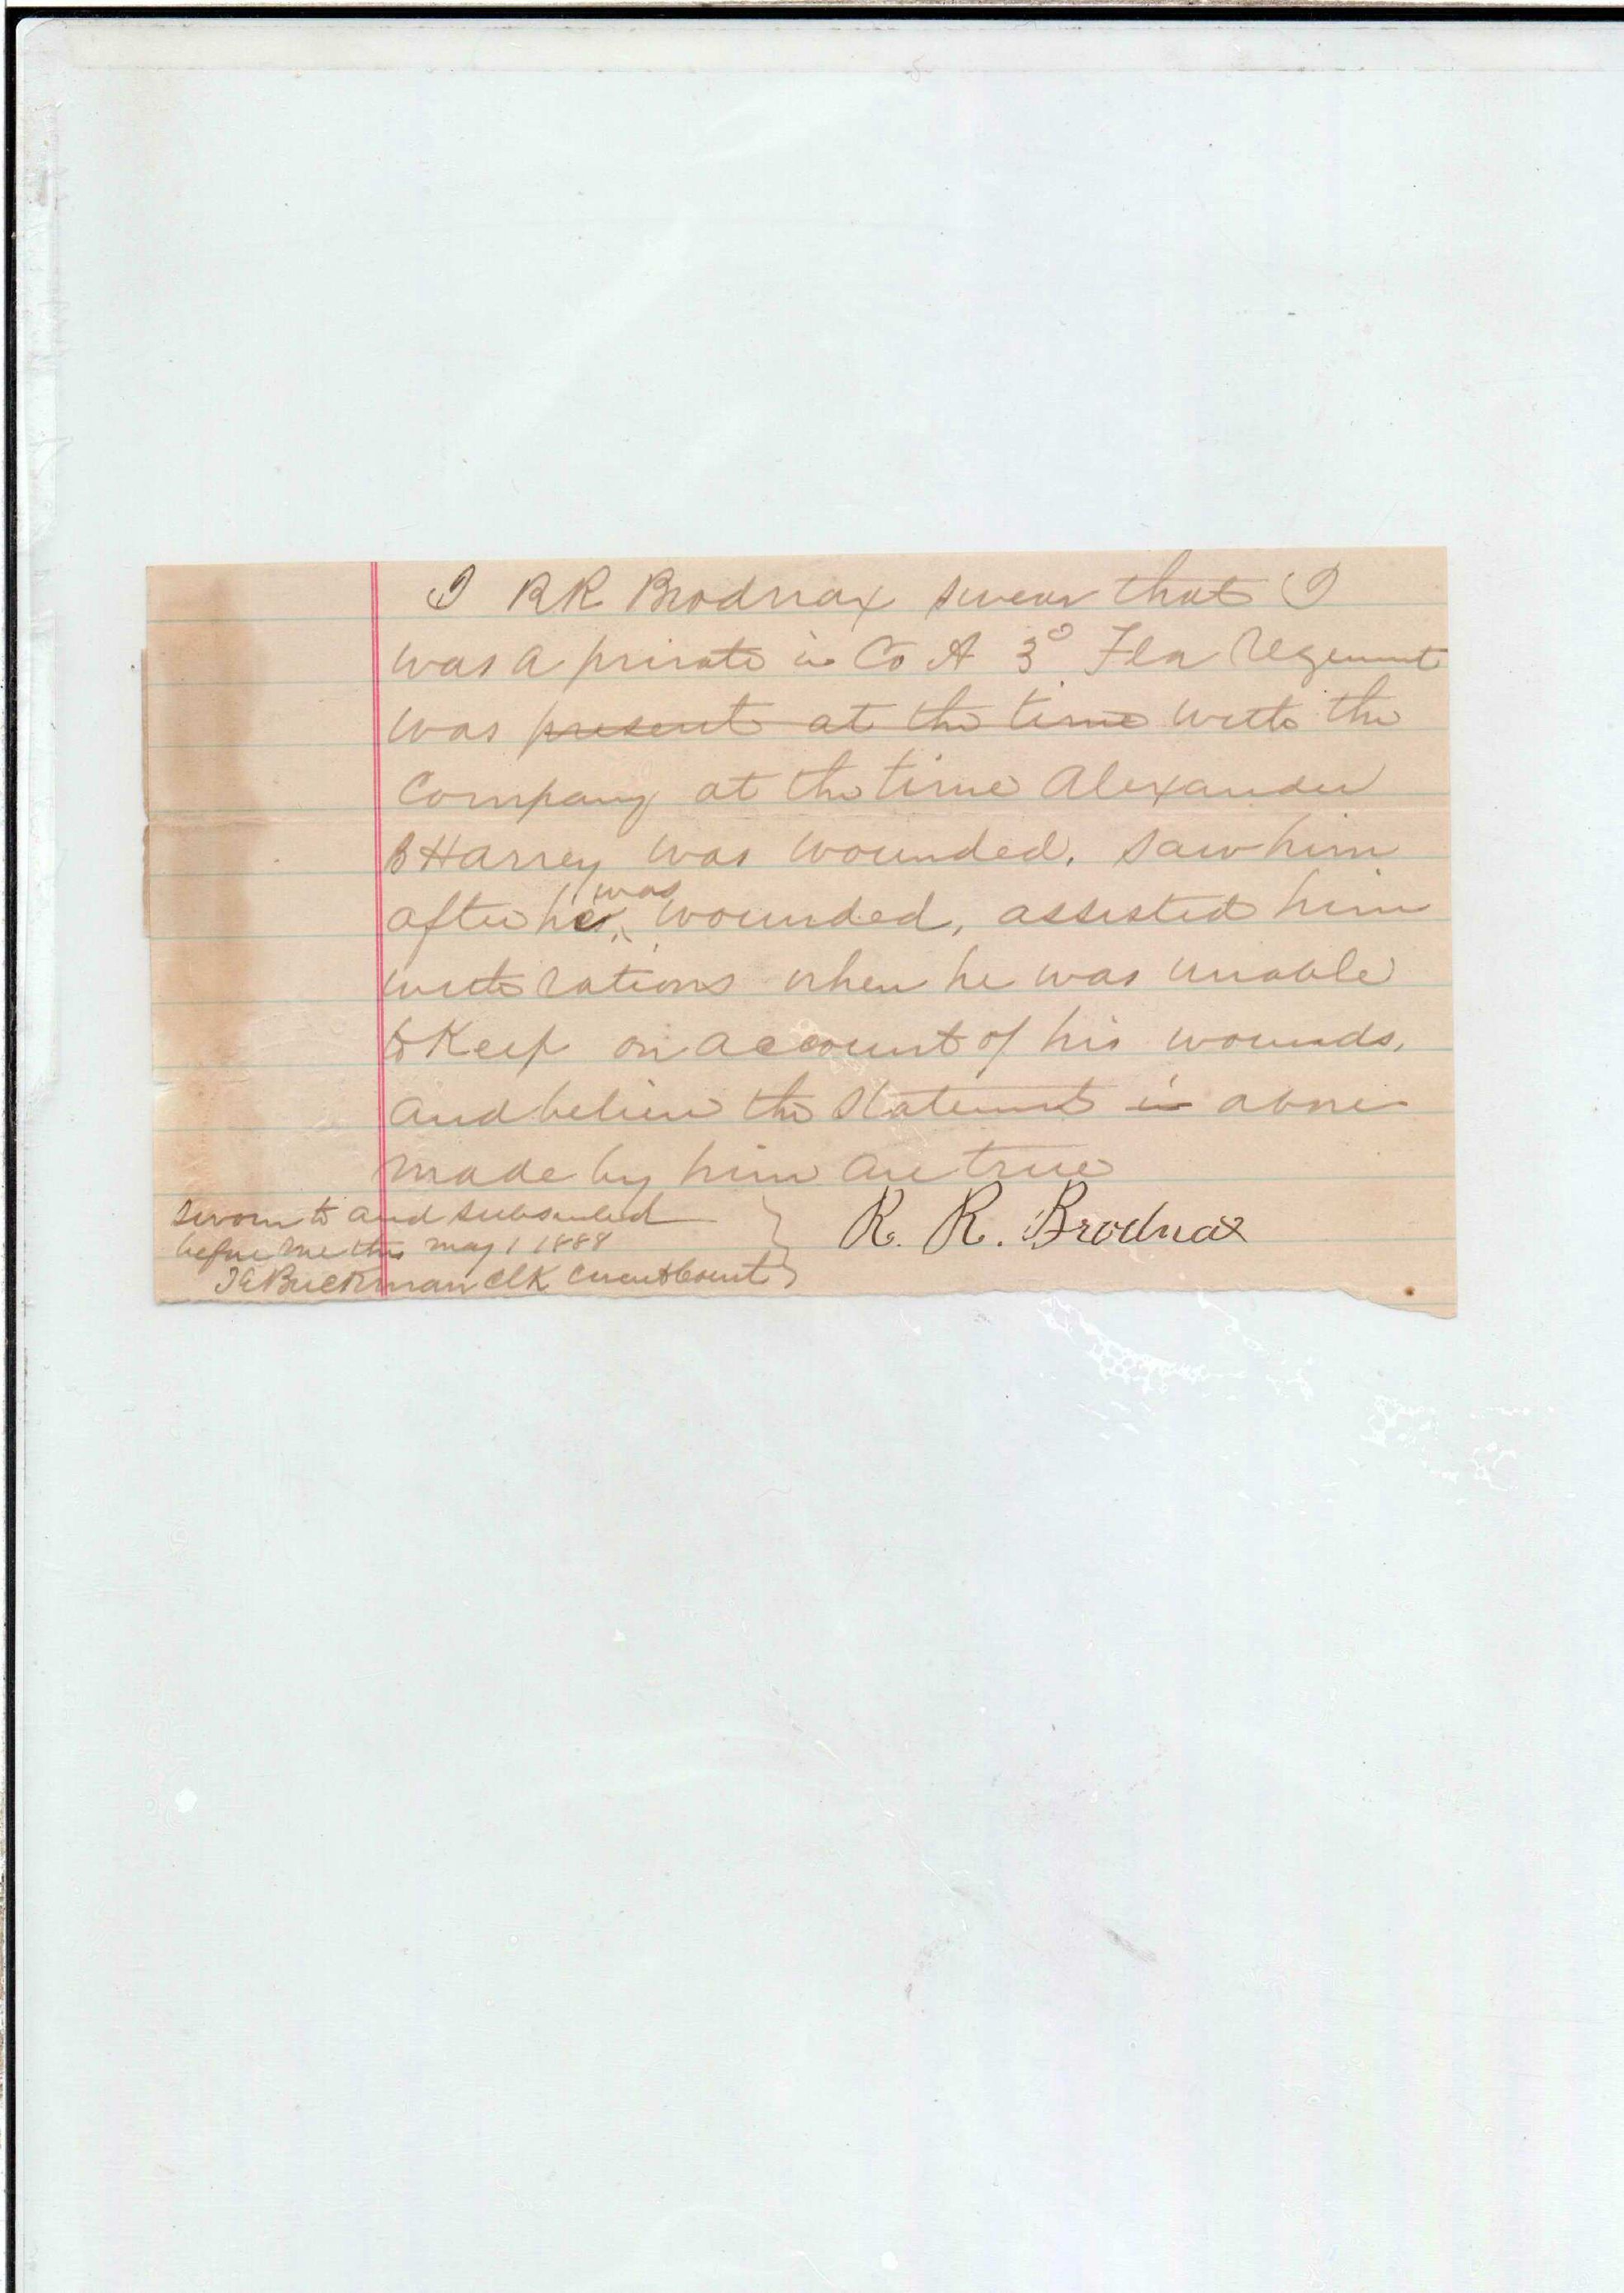 I RR Brodnax swear that I
was a private in Co A 3° Fla Regiment
was present at the time with the
Company at the time Alexander
B Harvey was wounded. Saw him
after he was wounded, assisted him
with rations when he was unable
to Keep on account of his wounds,
and believe the Statement in above
made by him are true
Sworn to and subscribed
before me this may 1 1888
R. R. Brodnax
T E Buckman Clk Circuit Court